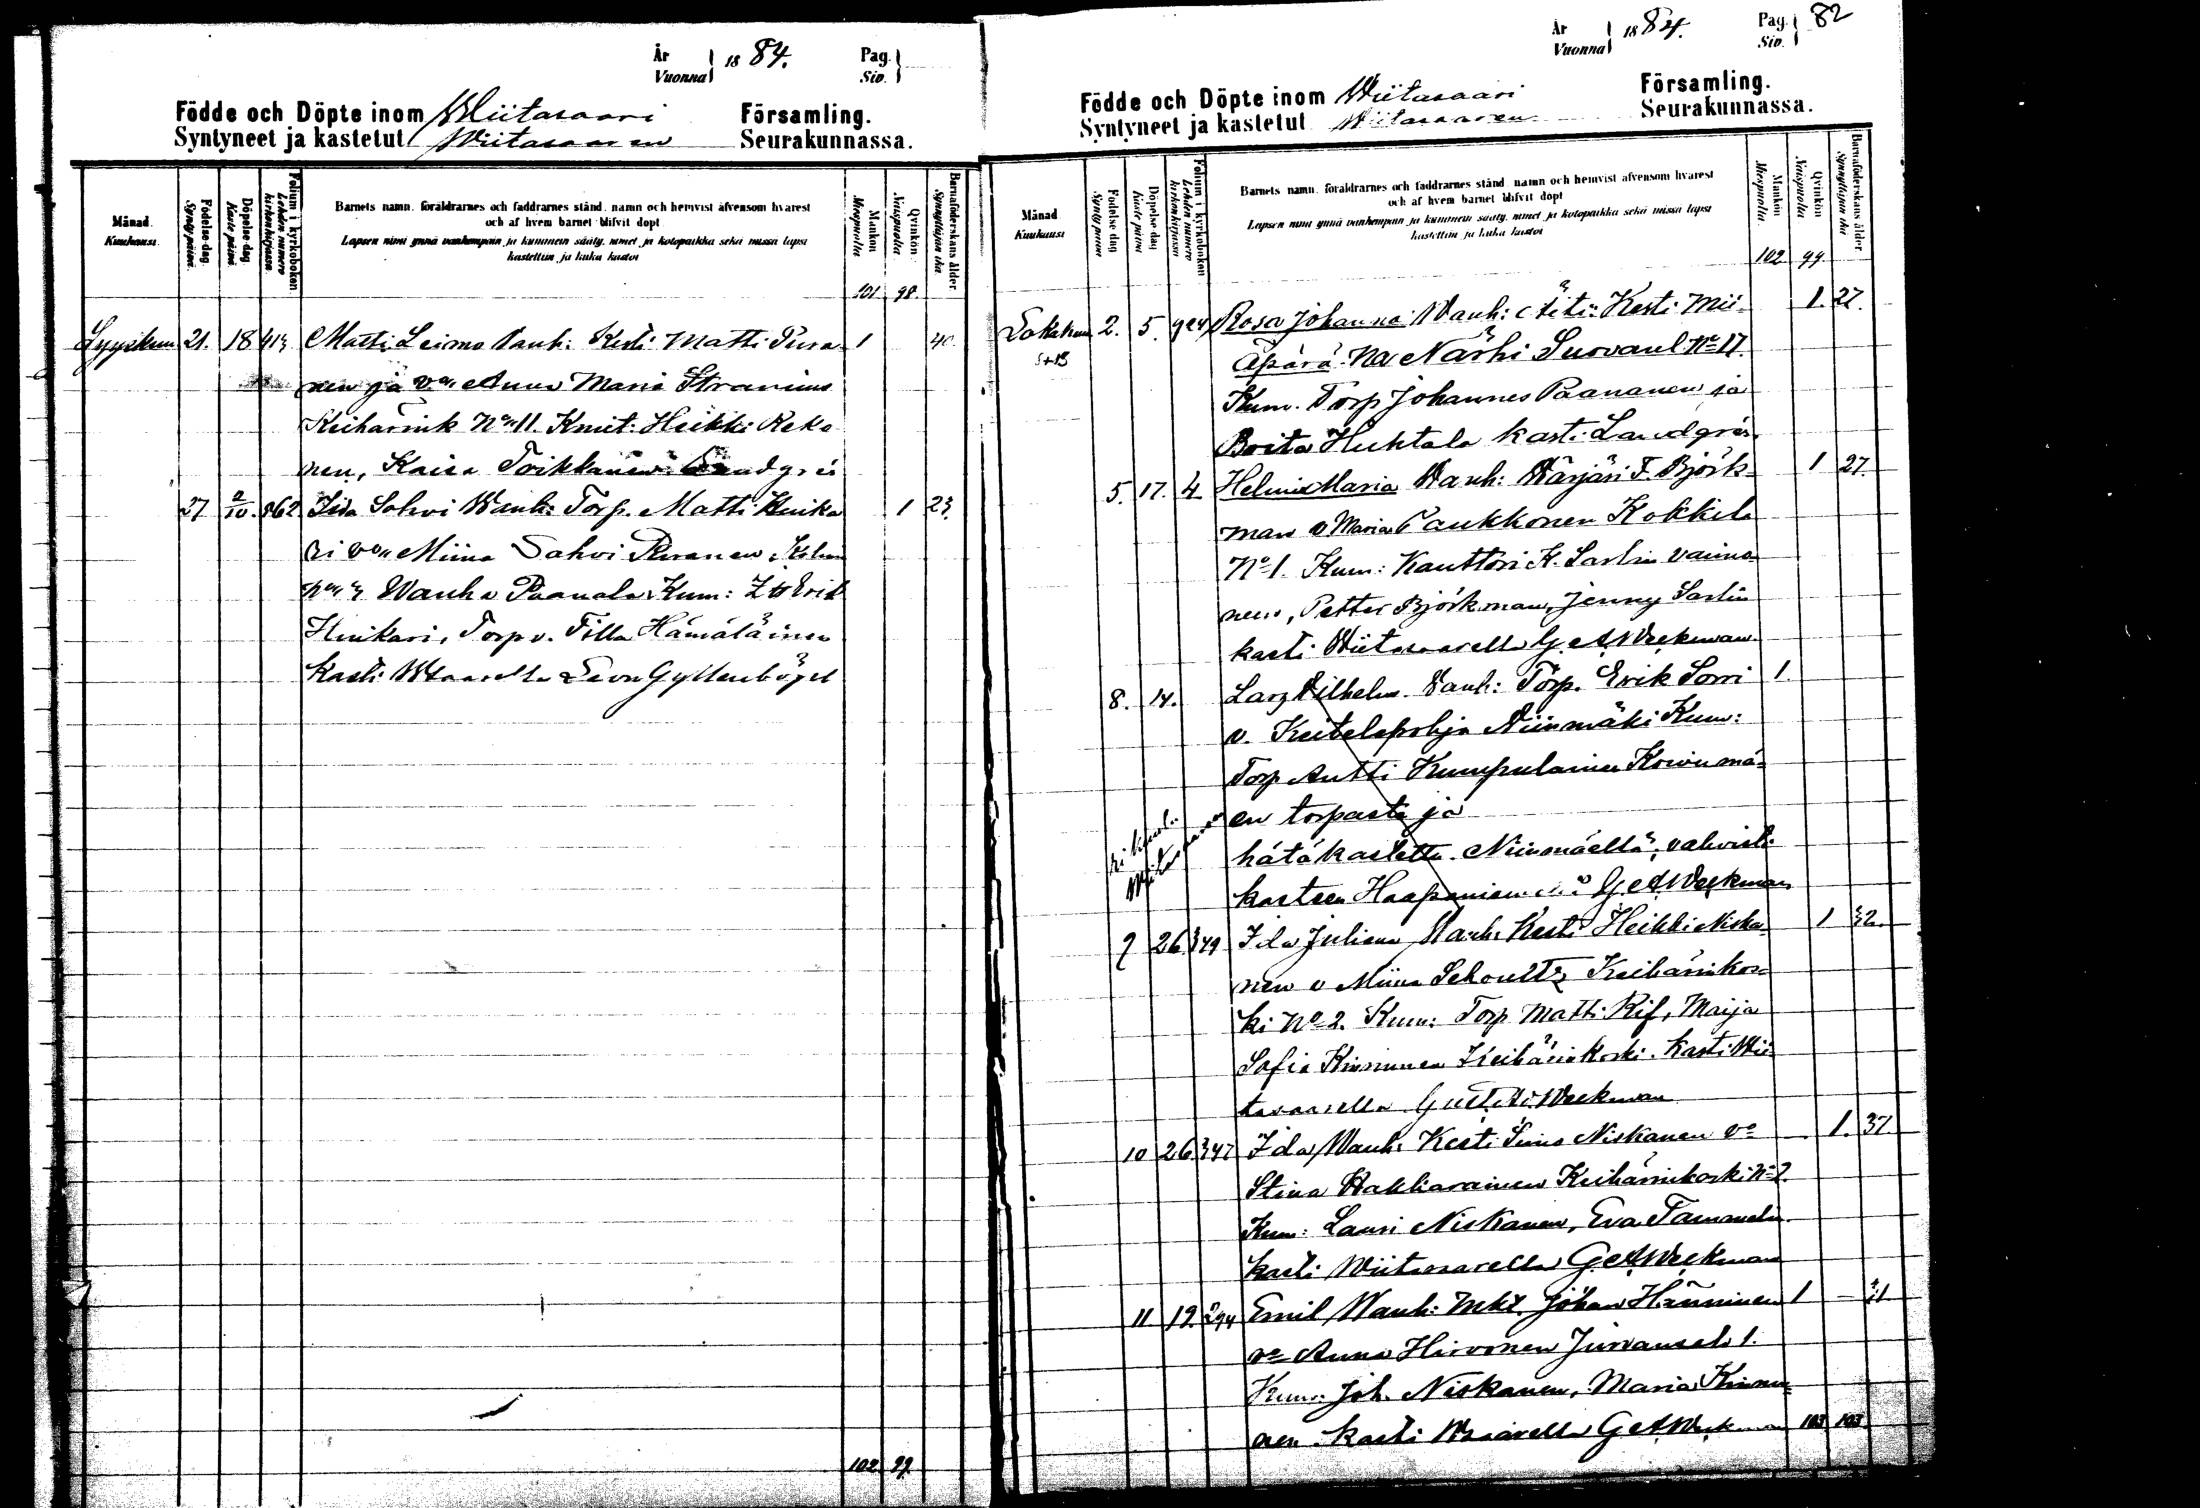 År Vuonna 1884. Pag. Siv.
Födde och Döpte inom Wiitasaari Församling.
Syntyneet ja kastetut Wiitasaaren Seurakunnassa.
Månad. Kuukausi.
Födelse-dag. Synty-päivä.
Döpelse-dag. Kaste-päivä.
Folium i kyrkoboken. Lehden numero kirkonkirjassa.
Barnets namn, föräldrarnes och faddrarnes stånd, namn och hemvist äfvensom hvarest
och af hvem barnet blifvit döpt
Lapsen nimi ynnä vanhempain ja kummein sääty, nimet ja kotopaikka sekä missä lapsi
kastettiin ja kuka kastoi
Mankön Miespuolta
Qvinkön Naispuolta
Barnaföderskans ålder Synnyttäjän ikä
101 98.
Syyskuu 21. 18 413 Matti Leimo Vanh: Kesti Matti Pura- 1 40.
nen ja vo Anna Maria Stranius
Keihärink No 11. Kmit: Heikki Keko
nen, Kaisa Toikkanen Landgrén
27 2/10 862 Ida Sohvi Wanh: Torp. Matti Huika 1 23.
ri von Miina Sohvi Puranen
No 3 Wanha Paanala Kum: Erik
Huikari, Torp v. Tilla Hämäläinen
Kasti Wsaarella Leon Gyllenbögel
102 99.
År Vuonna 1884. Pag. Siv. 82
Födde och Döpte inom Wiitasaari Församling.
Syntyneet ja kastetut Wiitasaaren Seurakunnassa.
Månad Kuukausi
Födelse dag Synty päivä
Döpelse dag Kaste päivä
Folium i kyrkoboken Lehden numero kirkonkirjassa
Barnets namn, föräldrarnes och faddrarnes stånd, namn och hemvist äfvensom hvarest
och af hvem barnet blifvit döpt
Lapsen nimi ynnä vanhempain ja kummein sääty, nimet ja kotopaikka sekä missä lapsi
kastettiin ja kuka kastoi
Mankön Miespuolta
Qvinkön Naispuolta
Barnaföderskans ålder Synnyttäjän ikä
102 99.
Lokakuu 2. 5. 924 Rosa Johanna Vanh: Äiti: Kesti Mii- 1. 27.
Äpärä na Närhi Suovanl No 17.
Kum. Torp Johannes Paananen ja
Brita Huhtala kasti: Landgrén.
5. 17. 4. Helmi Maria Vanh: Värjäri F. Björk- 1 27.
man v Maria Paukkonen Kokkila
No 1. Kum: Kanttori K. Sarlin vaimo-
neen, Petter Björkman, Jenny Sarlin
kasti Wiitasaarella G. A. Weekman
8. 14. Lars Vilhelm. Vanh: Torp. Erik Sorri 1.
v. Keitelepohja Niinmäki Kum:
Torp Antti Kumpulainen Koivumä-
en torpasta ja
hätäkastettu Niinmäellä; vahvisti
kasteen Haapaniem G. A. Weekman
9 26 349 Ida Juliana Vanh: Kesti Heikki Niska- 1 32.
nen v Miina Schoultz Keihärinkos-
ki No 2. Kum: Torp Matti Rif, Maija
Sofia Kinnunen Keihärinkoski. Kasti Wii
tasaarella Gust. Ad. Weekman
10 26 347 Ida Vanh: Kesti Simo Niskanen vo 1. 37
Stina Hakkarainen Keihärinkoski No 2.
Kum: Lauri Niskanen, Eva
kasti Wiitasaarella G. A. Weekman
11. 19. 294 Emil Wanh: Mkt. Johan Hänninen 1 –
vo Anna Hirvonen Jurvansalo 1.
Kum: Joh. Niskanen, Maria Kinnu-
nen. kasti Wsaarella G A Weekman 103 103